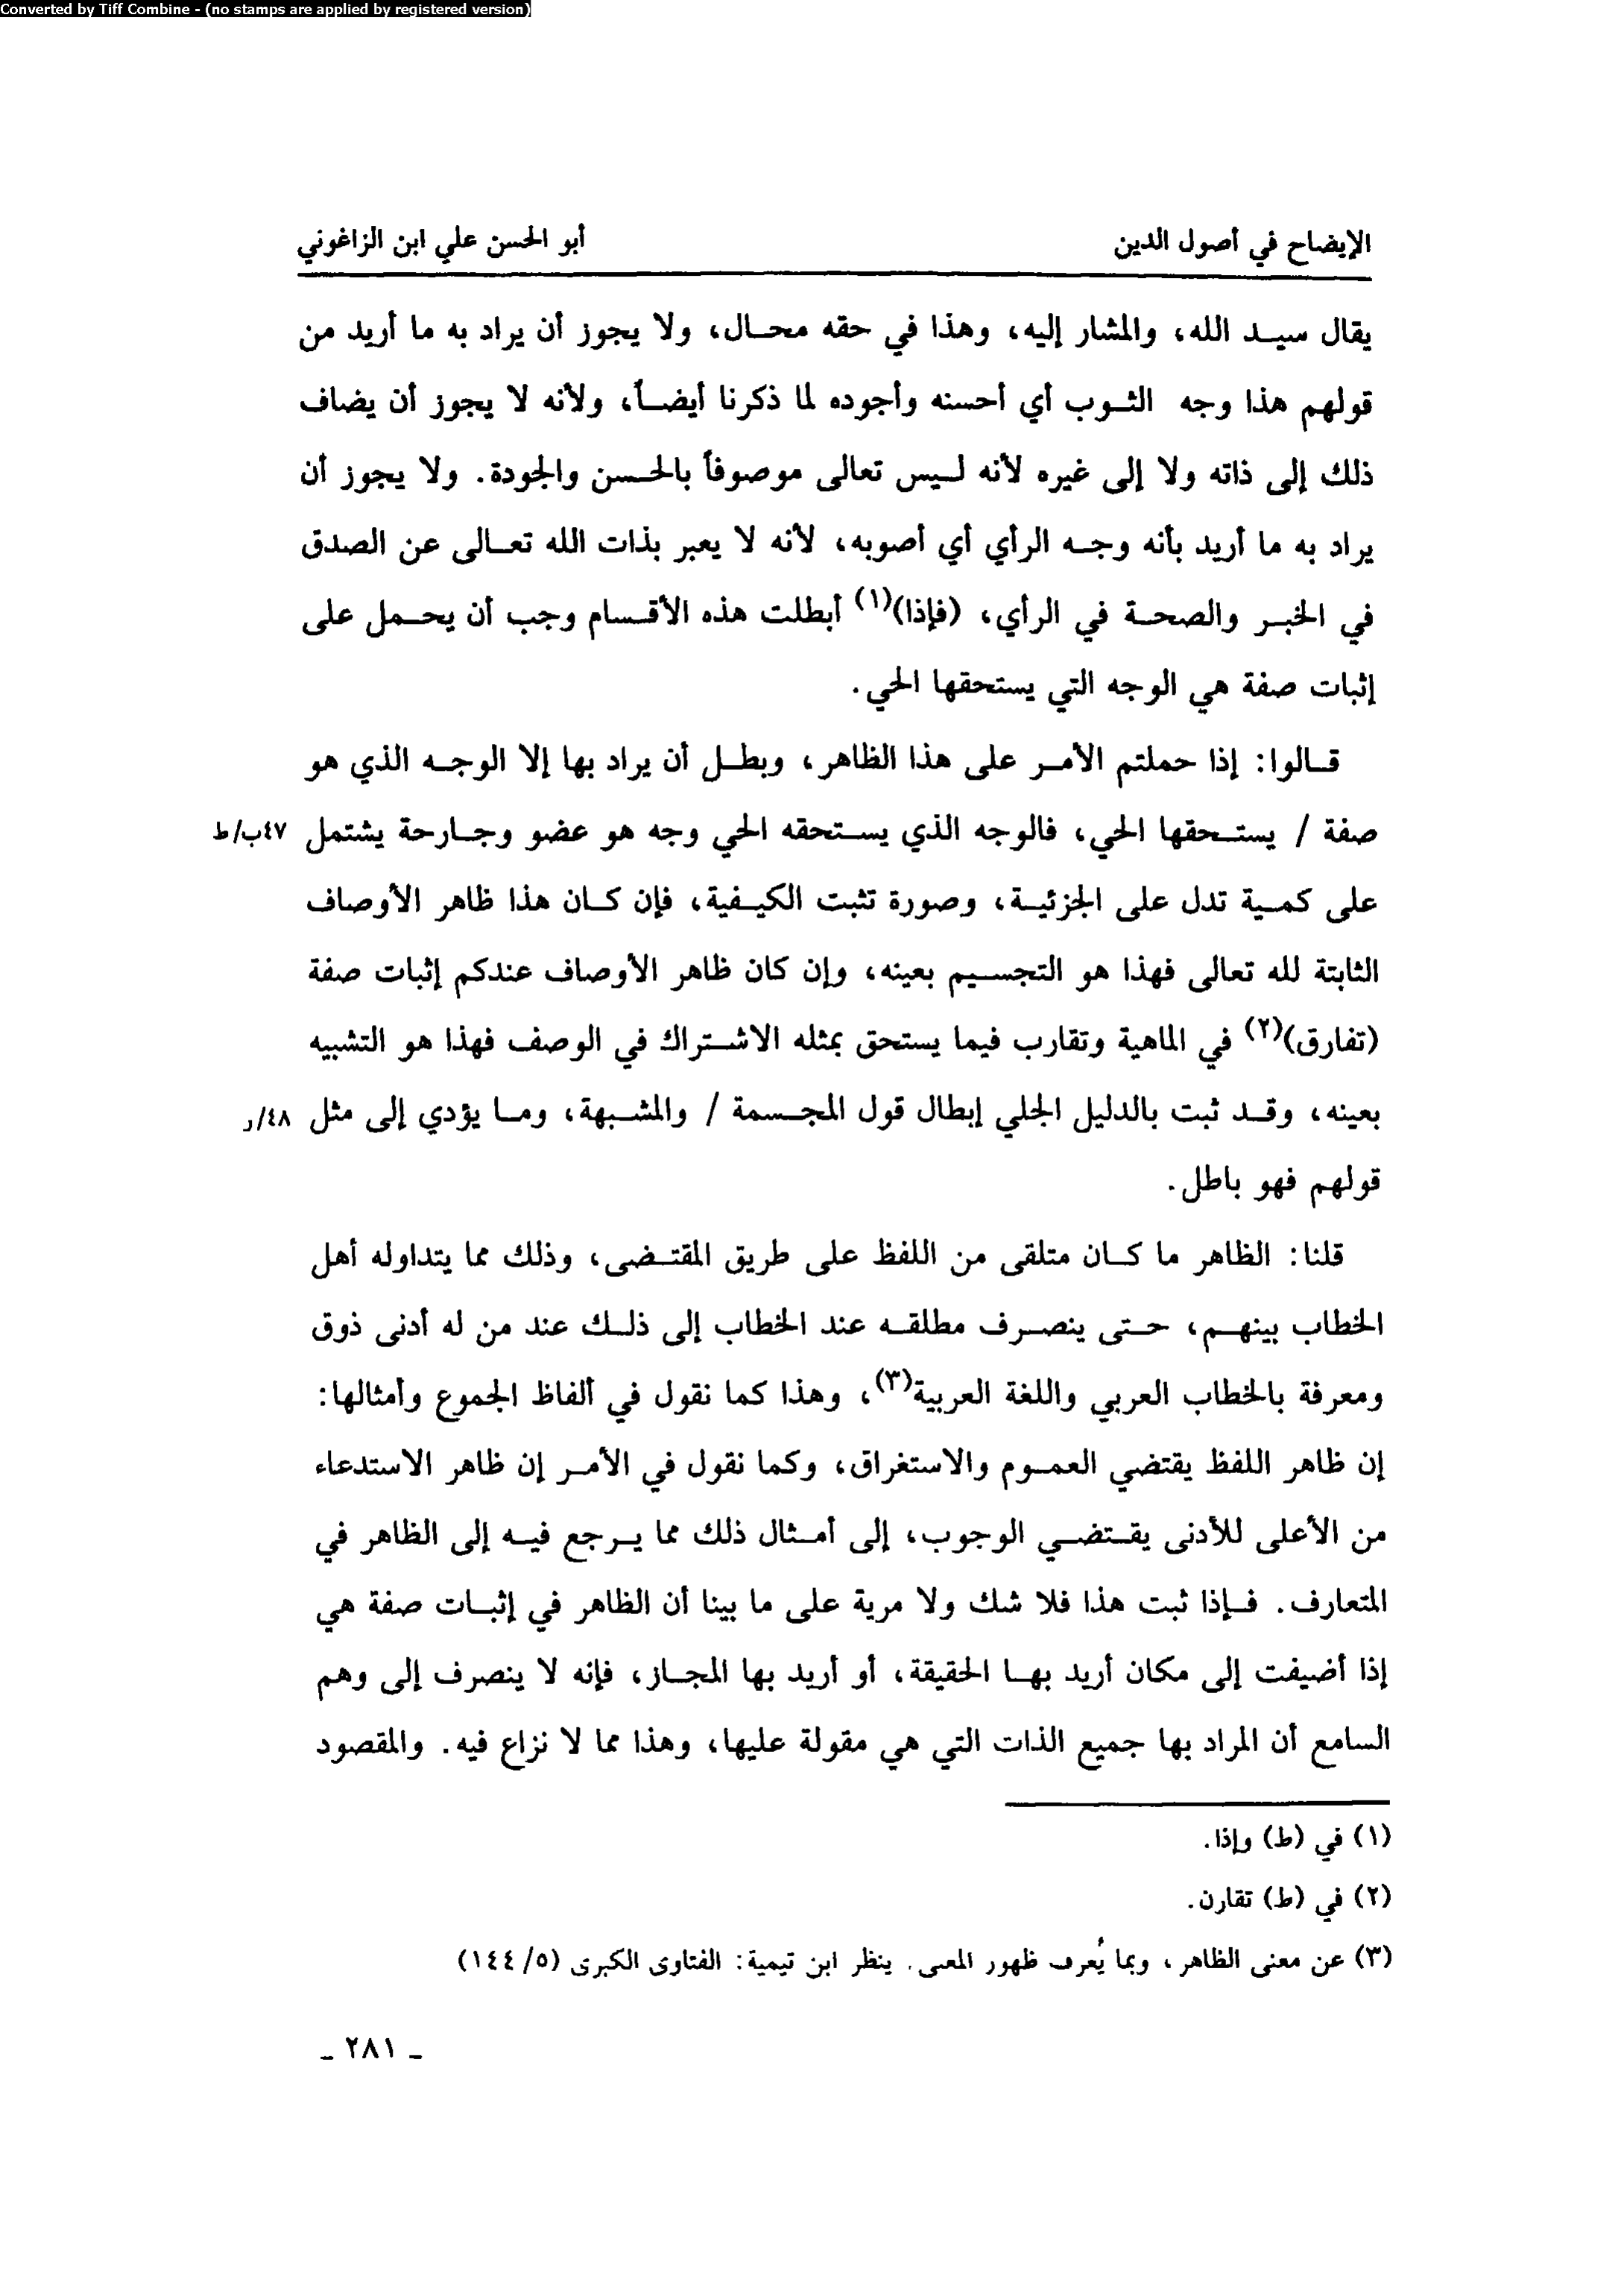 Converted by Tiff Combine - (no stamps are applied by registered version)
الإيضاح في أصول الدين أبو الحسن علي ابن الزاغوني
يقال سيد الله، والمشار إليه، وهذا في حقه محال، ولا يجوز أن يراد به ما أريد من
قولهم هذا وجه الثوب أي أحسنه وأجوده لما ذكرنا أيضاً، ولأنه لا يجوز أن يضاف
ذلك إلى ذاته ولا إلى غيره لأنه ليس تعالى موصوفاً بالحسن والجودة. ولا يجوز أن
يراد به ما أريد بأنه وجه الرأي أي أصوبه، لأنه لا يعبر بذات الله تعالى عن الصدق
في الخبر والصحة في الرأي، (فإذا)(١) أبطلت هذه الأقسام وجب أن يحمل على
إثبات صفة هي الوجه التي يستحقها الحي.
قالوا: إذا حملتم الأمر على هذا الظاهر، وبطل أن يراد بها إلا الوجه الذي هو
صفة / يستحقها الحي، فالوجه الذي يستحقه الحي وجه هو عضو وجارحة يشتمل ٤٧ب/ط
على كمية تدل على الجزئية، وصورة تثبت الكيفية، فإن كان هذا ظاهر الأوصاف
الثابتة لله تعالى فهذا هو التجسيم بعينه، وإن كان ظاهر الأوصاف عندكم إثبات صفة
(تفارق)(٢) في الماهية وتقارب فيما يستحق بمثله الاشتراك في الوصف فهذا هو التشبيه
بعينه، وقد ثبت بالدليل الجلي إبطال قول المجسمة / والمشبهة، وما يؤدي إلى مثل ٤٨/ر
قولهم فهو باطل.
قلنا: الظاهر ما كان متلقى من اللفظ على طريق المقتضى، وذلك مما يتداوله أهل
الخطاب بينهم، حتى ينصرف مطلقه عند الخطاب إلى ذلك عند من له أدنى ذوق
ومعرفة بالخطاب العربي واللغة العربية(٣)، وهذا كما نقول في ألفاظ الجموع وأمثالها:
إن ظاهر اللفظ يقتضي العموم والاستغراق، وكما نقول في الأمر إن ظاهر الاستدعاء
من الأعلى للأدنى يقتضي الوجوب، إلى أمثال ذلك مما يرجع فيه إلى الظاهر في
المتعارف. فإذا ثبت هذا فلا شك ولا مرية على ما بينا أن الظاهر في إثبات صفة هي
إذا أضيفت إلى مكان أريد بها الحقيقة، أو أريد بها المجاز، فإنه لا ينصرف إلى وهم
السامع أن المراد بها جميع الذات التي هي مقولة عليها، وهذا مما لا نزاع فيه. والمقصود
(١) في (ط) وإذا.
(٢) في (ط) تقارن.
(٣) عن معنى الظاهر، وبما يُعرف ظهور المعنى. ينظر ابن تيمية: الفتاوى الكبرى (٥/١٤٤)
ـ ٢٨١ ـ